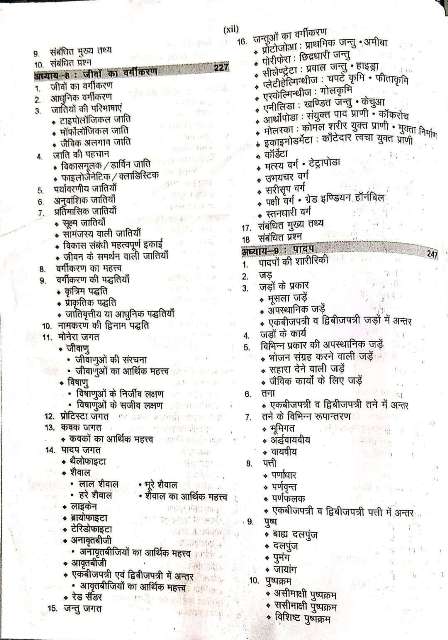 (xii)
9. संबंधित मुख्य तथ्य
10. संबंधित प्रश्न
अध्याय-8 : जीवों का वर्गीकरण 227
1. जीवों का वर्गीकरण
2. आधुनिक वर्गीकरण
3. जातियों की परिभाषाएं
• टाइपोलॉजिकल जाति
• मॉर्फोलॉजिकल जाति
• जैविक अलगाव जाति
4. जाति की पहचान
• विकासमूलक/डार्विन जाति
• फाइलोजैनेटिक/क्लाडिस्टिक
5. पर्यावरणीय जातियाँ
6. अनुवांशिक जातियाँ
7. प्रतिमासिक जातियाँ
• सूक्ष्म जातियाँ
• सामंजस्य वाली जातियाँ
• विकास संबंधी महत्वपूर्ण इकाई
• जीवन के समर्थन वाली जातियाँ
8. वर्गीकरण का महत्त्व
9. वर्गीकरण की पद्धतियाँ
• कृत्रिम पद्धति
• प्राकृतिक पद्धति
• जातिवृत्तीय या आधुनिक पद्धतियाँ
10. नामकरण की द्विनाम पद्धति
11. मोनेरा जगत
• जीवाणु
• जीवाणुओं की संरचना
• जीवाणुओं का आर्थिक महत्त्व
• विषाणु
• विषाणुओं के निर्जीव लक्षण
• विषाणुओं के सजीव लक्षण
12. प्रोटिस्टा जगत
13. कवक जगत
• कवकों का आर्थिक महत्त्व
14. पादप जगत
• थैलोफाइटा
• शैवाल
• लाल शैवाल • भूरे शैवाल
• हरे शैवाल • शैवाल का आर्थिक महत्त्व
• लाइकेन
• ब्रायोफाइटा
• टेरिडोफाइटा
अनावृतबीजी
• अनावृतबीजियों का आर्थिक महत्त्व
• आवृतबीजी
• एकबीजपत्री एवं द्विबीजपत्री में अन्तर
• आवृतबीजियों का आर्थिक महत्त्व
• रेड सैंडर
15. जन्तु जगत
16. जन्तुओं का वर्गीकरण
• प्रोटोजोआ: प्राथमिक जन्तु • अमीबा
• पोरीफेरा: छिद्रधारी जन्तु
• सीलेण्ट्रेटा: प्रवाल जन्तु • हाइड्रा
• प्लेटीहेल्मिन्थीज: चपटे कृमि • फीताकृमि
• एस्केल्मिन्थीज: गोलकृमि
• एनीलिडा: खण्डित जन्तु • केंचुआ
• आर्थोपोडा: संयुक्त पाद प्राणी • कॉकरोच
• मोलस्का: कोमल शरीर युक्त प्राणी • मुक्ता निर्माण
• इकाइनोडर्मेटा: काँटेदार त्वचा युक्त प्राणी
• कॉर्डेटा
• मत्स्य वर्ग • टेट्रापोडा
• उभयचर वर्ग
• सरीसृप वर्ग
• पक्षी वर्ग • ग्रेड इण्डियन हॉर्नबिल
• स्तनधारी वर्ग
17. संबंधित मुख्य तथ्य
18 संबंधित प्रश्न
अध्याय-9 : पादप 247
1. पादपों की शारीरिकी
2. जड़
3. जड़ों के प्रकार
• मूसला जड़ें
• अपस्थानिक जड़ें
• एकबीजपत्री व द्विबीजपत्री जड़ों में अन्तर
4. जड़ों के कार्य
5. विभिन्न प्रकार की अपस्थानिक जड़ें
• भोजन संग्रह करने वाली जड़ें
• सहारा देने वाली जड़ें
• जैविक कार्यों के लिए जड़ें
6. तना
• एकबीजपत्री व द्विबीजपत्री तने में अन्तर
7. तने के विभिन्न रूपान्तरण
• भूमिगत
• अर्द्धवायवीय
• वायवीय
8. पत्ती
• पर्णाधार
• पर्णवृन्त
• पर्णफलक
• एकबीजपत्री व द्विबीजपत्री पत्ती में अन्तर
9. पुष्प
• बाह्य दलपुंज
• दलपुंज
• पुमंग
• जायांग
10. पुष्पक्रम
• असीमाक्षी पुष्पक्रम
• ससीमाक्षी पुष्पक्रम
• विशिष्ट पुष्पक्रम